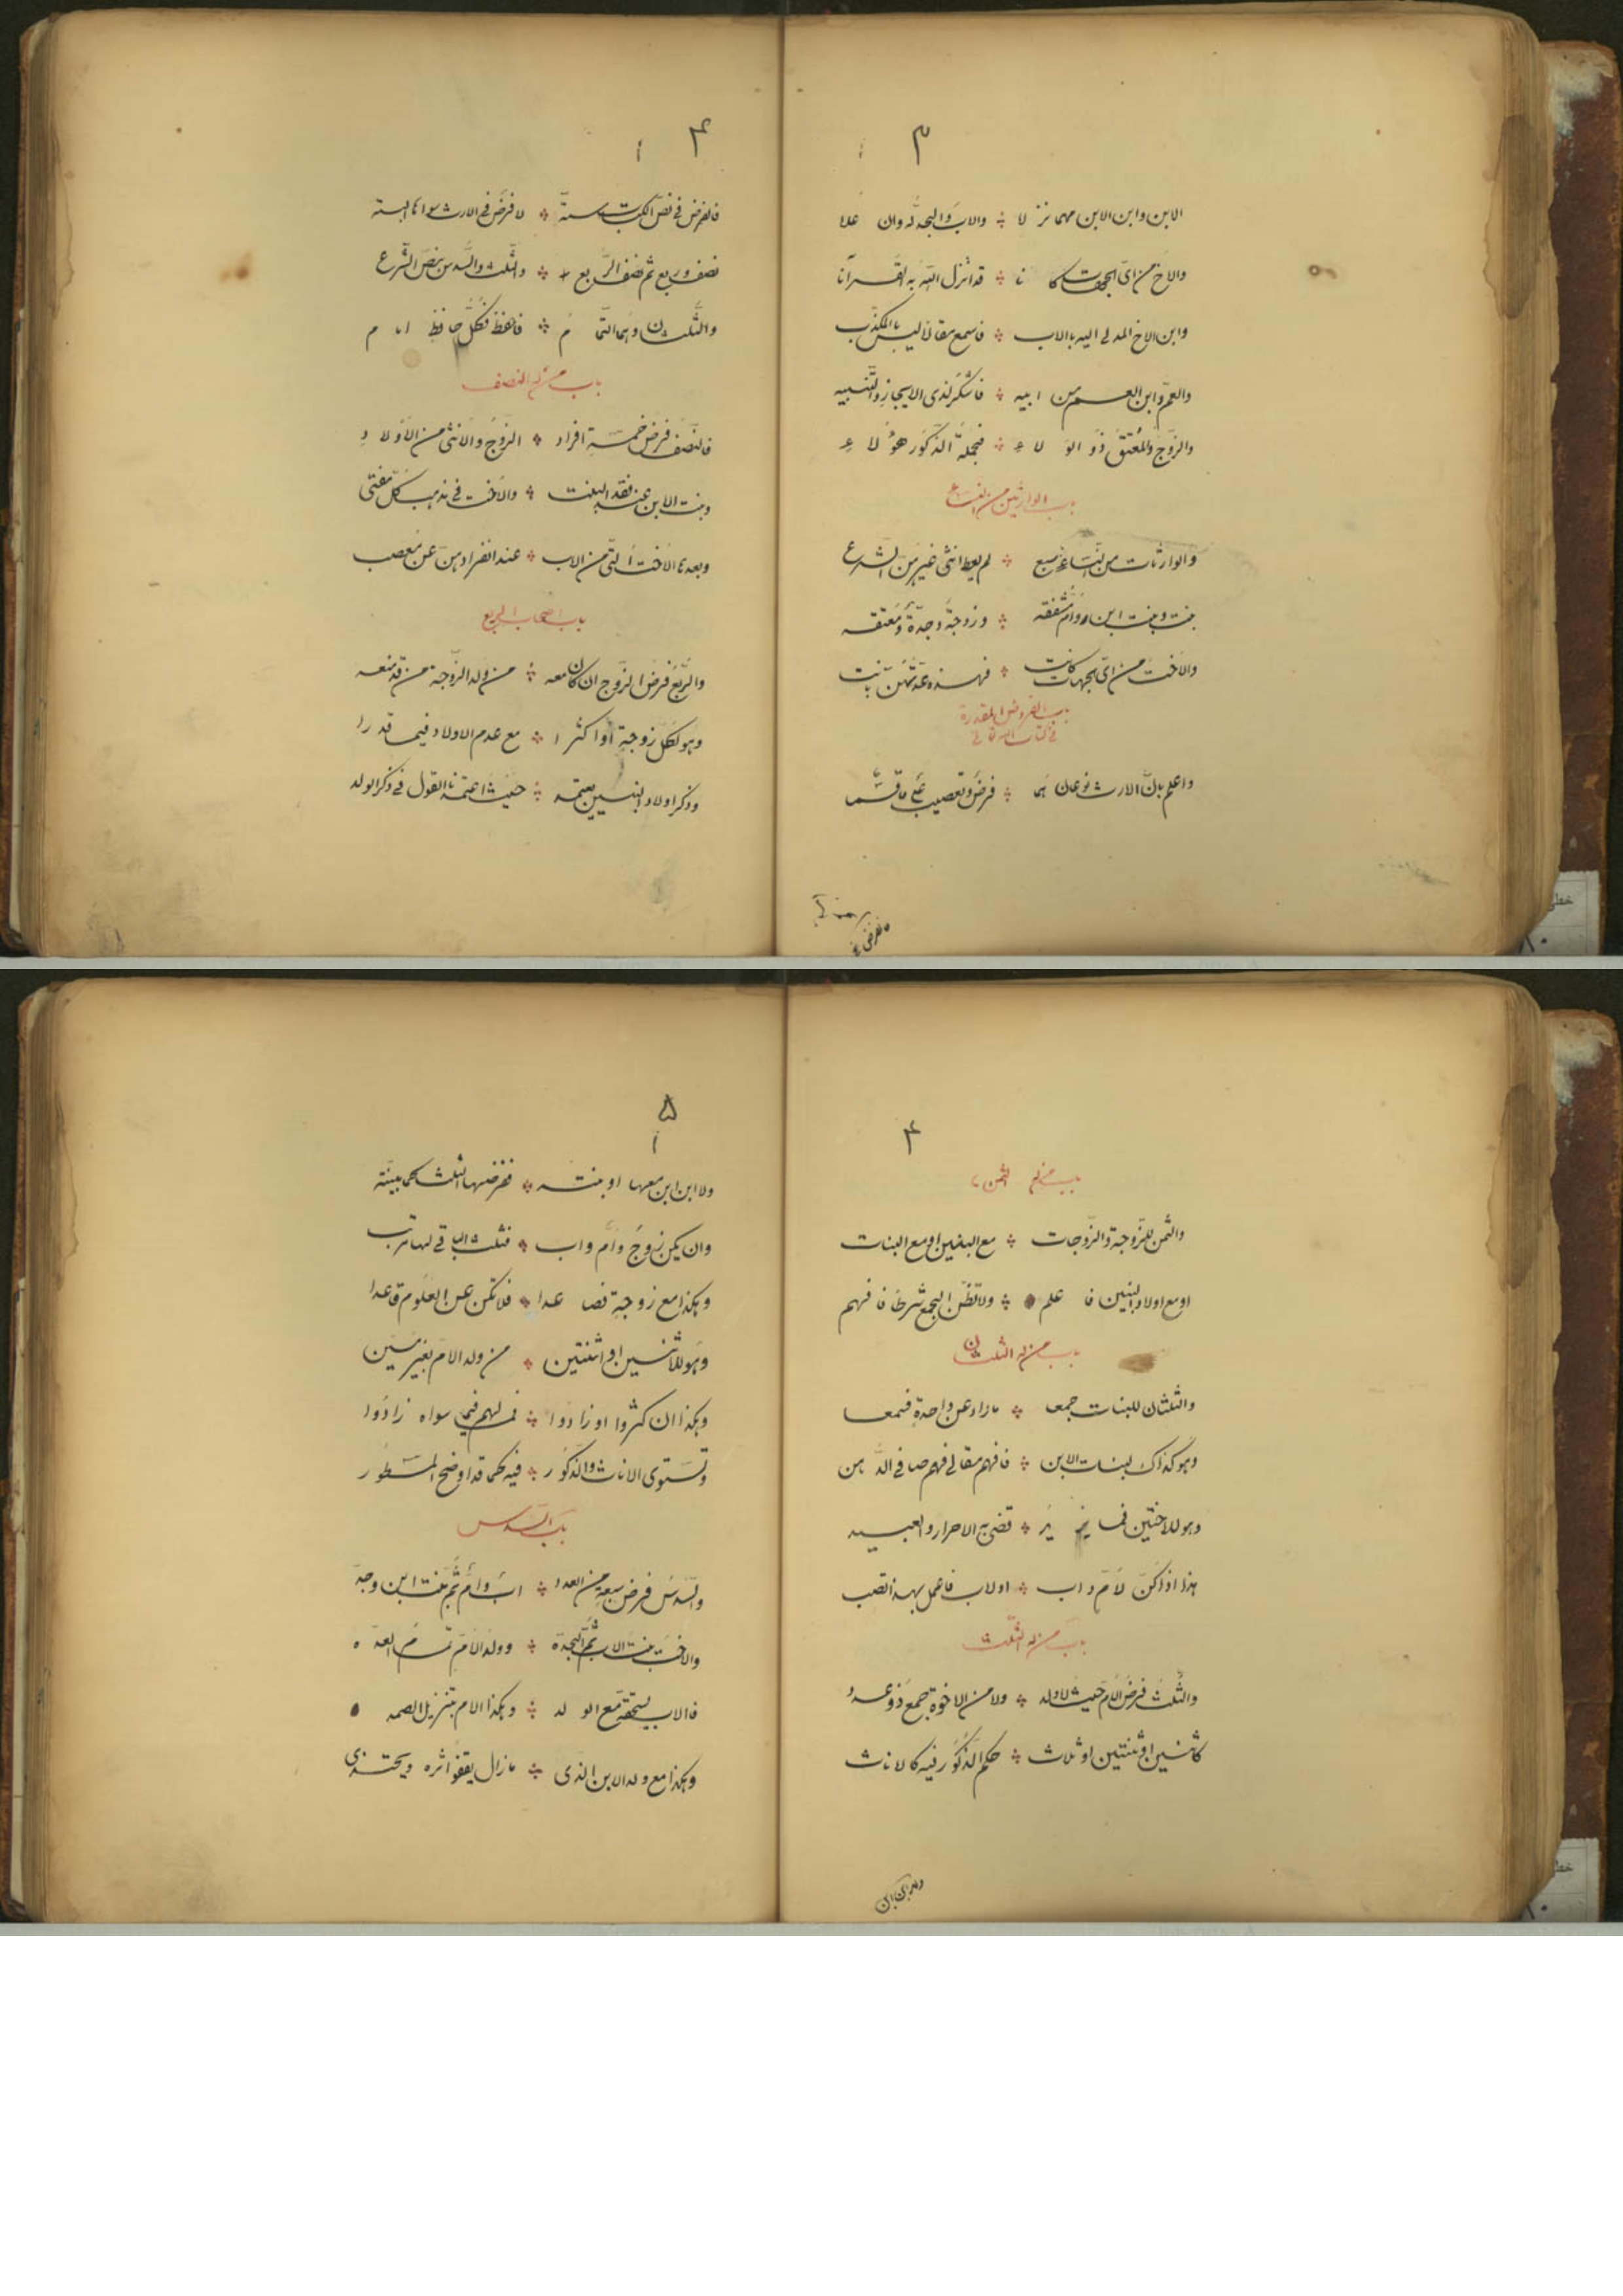 ٣
الابن وابن الابن مهما نزلا ۞ والاب والجد له وان علا
والاخ من اي الجهات كانا ۞ قد انزل الله به القرآنا
وابن الاخ المدلي اليه بالاب ۞ فاسمع مقالا ليس بالمكذب
والعم وابن العم من ابيه ۞ فاشكر لذي الايجاز والتنبيه
والزوج والمعتق ذو الولاء ۞ فجملة الذكور هؤلاء
باب الوارثين من النساء
والوارثات من النساء سبع ۞ لم يعط انثى غيرهن الشرع
بنت وبنت ابن وام مشفقه ۞ وزوجة وجدة ومعتقه
والاخت من اي الجهات كانت ۞ فهذه عدتهن بانت
باب الفروض المقدرة
في كتاب الله تعالى
واعلم بان الارث نوعان هما ۞ فرض وتعصيب على ما قسما
فالفرض في
٤
١
فالفرض في نص الكتاب ستة ۞ لا فرض في الارث سواها البته
نصف وربع ثم نصف الربع ۞ والثلث والسدس بنص الشرع
والثلثان وهما التمام ۞ فاحفظ فكل حافظ امام
باب من له النصف
فالنصف فرض خمسة افراد ۞ الزوج والانثى من الاولاد
وبنت الابن عند فقد البنت ۞ والاخت في مذهب كل مفتي
وبعدها الاخت التي من الاب ۞ عند انفرادهن عن معصب
باب اصحاب الربع
والربع فرض الزوج ان كان معه ۞ من ولد الزوجة من قد منعه
وهو لكل زوجة او اكثرا ۞ مع عدم الاولاد فيما قدرا
وذكر اولاد البنين يعتمد ۞ حيث اعتمدنا القول في ذكر الولد
٤
باب من له الثمن
والثمن للزوجة والزوجات ۞ مع البنين او مع البنات
او مع اولاد البنين فاعلم ۞ ولا تظن الجمع شرطا فافهم
باب من له الثلثان
والثلثان للبنات جمعا ۞ ما زاد عن واحدة فسمعا
وهو كذاك لبنات الابن ۞ فافهم مقالي فهم صافي الذهن
وهو للاختين فما يزيد ۞ قضى به الاحرار والعبيد
هذا اذا كن لام واب ۞ او لاب فاعمل بهذا تصب
باب من له الثلث
والثلث فرض الام حيث لا ولد ۞ ولا من الاخوة جمع ذو عدد
كاثنين او ثنتين او ثلاث ۞ حكم الذكور فيه كالاناث
ولا ابن ابن
٥
١
ولا ابن ابن معها او بنته ۞ ففرضها الثلث كما بينته
وان يكن زوج وام واب ۞ فثلث الباقي لها مرتب
وهكذا مع زوجة فصاعدا ۞ فلا تكن عن العلوم قاعدا
وهو للاثنين او اثنتين ۞ من ولد الام بغير مين
وهكذا ان كثروا او زادوا ۞ فما لهم فيما سواه زادوا
وتستوي الاناث والذكور ۞ فيه كما قد اوضح المسطور
باب السدس
والسدس فرض سبعة من العدد ۞ اب وام ثم بنت ابن وجد
والاخت بنت الاب ثم الجدة ۞ وولد الام تمام العدة
فالاب يستحقه مع الولد ۞ وهكذا الام بتنزيل الصمد
وهكذا مع ولد الابن الذي ۞ ما زال يقفو اثره ويحتذي